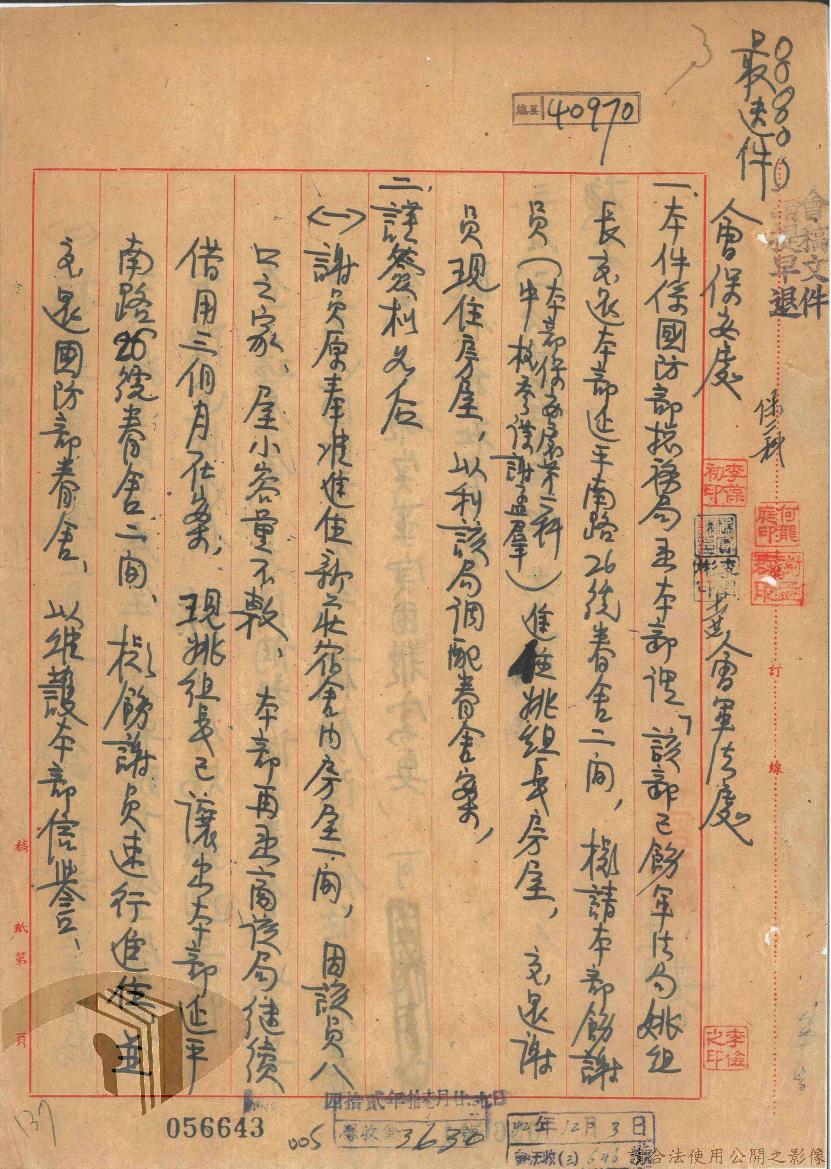 最速件
40970
會稿文件
請提早退
會保安處
保二科
並會軍法處
李葆初印
何龍庭印
一、本件係國防部總務局函本部謂「該部已飭軍法局姚組
長交還本部延平南路26號眷舍二間，擬請本部飭謝
員（本部保安處第二科中校參謀謝孟羣）進住姚組長房屋，交還謝
員現住房屋，以利該局調配眷舍案，
二、謹簽核如后
㈠謝員原奉准進住新莊宿舍內房屋一間，因該員八
口之家、屋小容量不敷、本部再函商該局繼續
借用三個月在案，現姚組長已讓出本部延平
南路26號眷舍二間、擬飭謝員速行進住、並
交還國防部眷舍、以維護本部信譽、
訂線
李儉之印
稿紙第 頁
四拾貳年拾壹月廿九日
056643
005
3630
年12月3日
137
請合法使用公開之影像